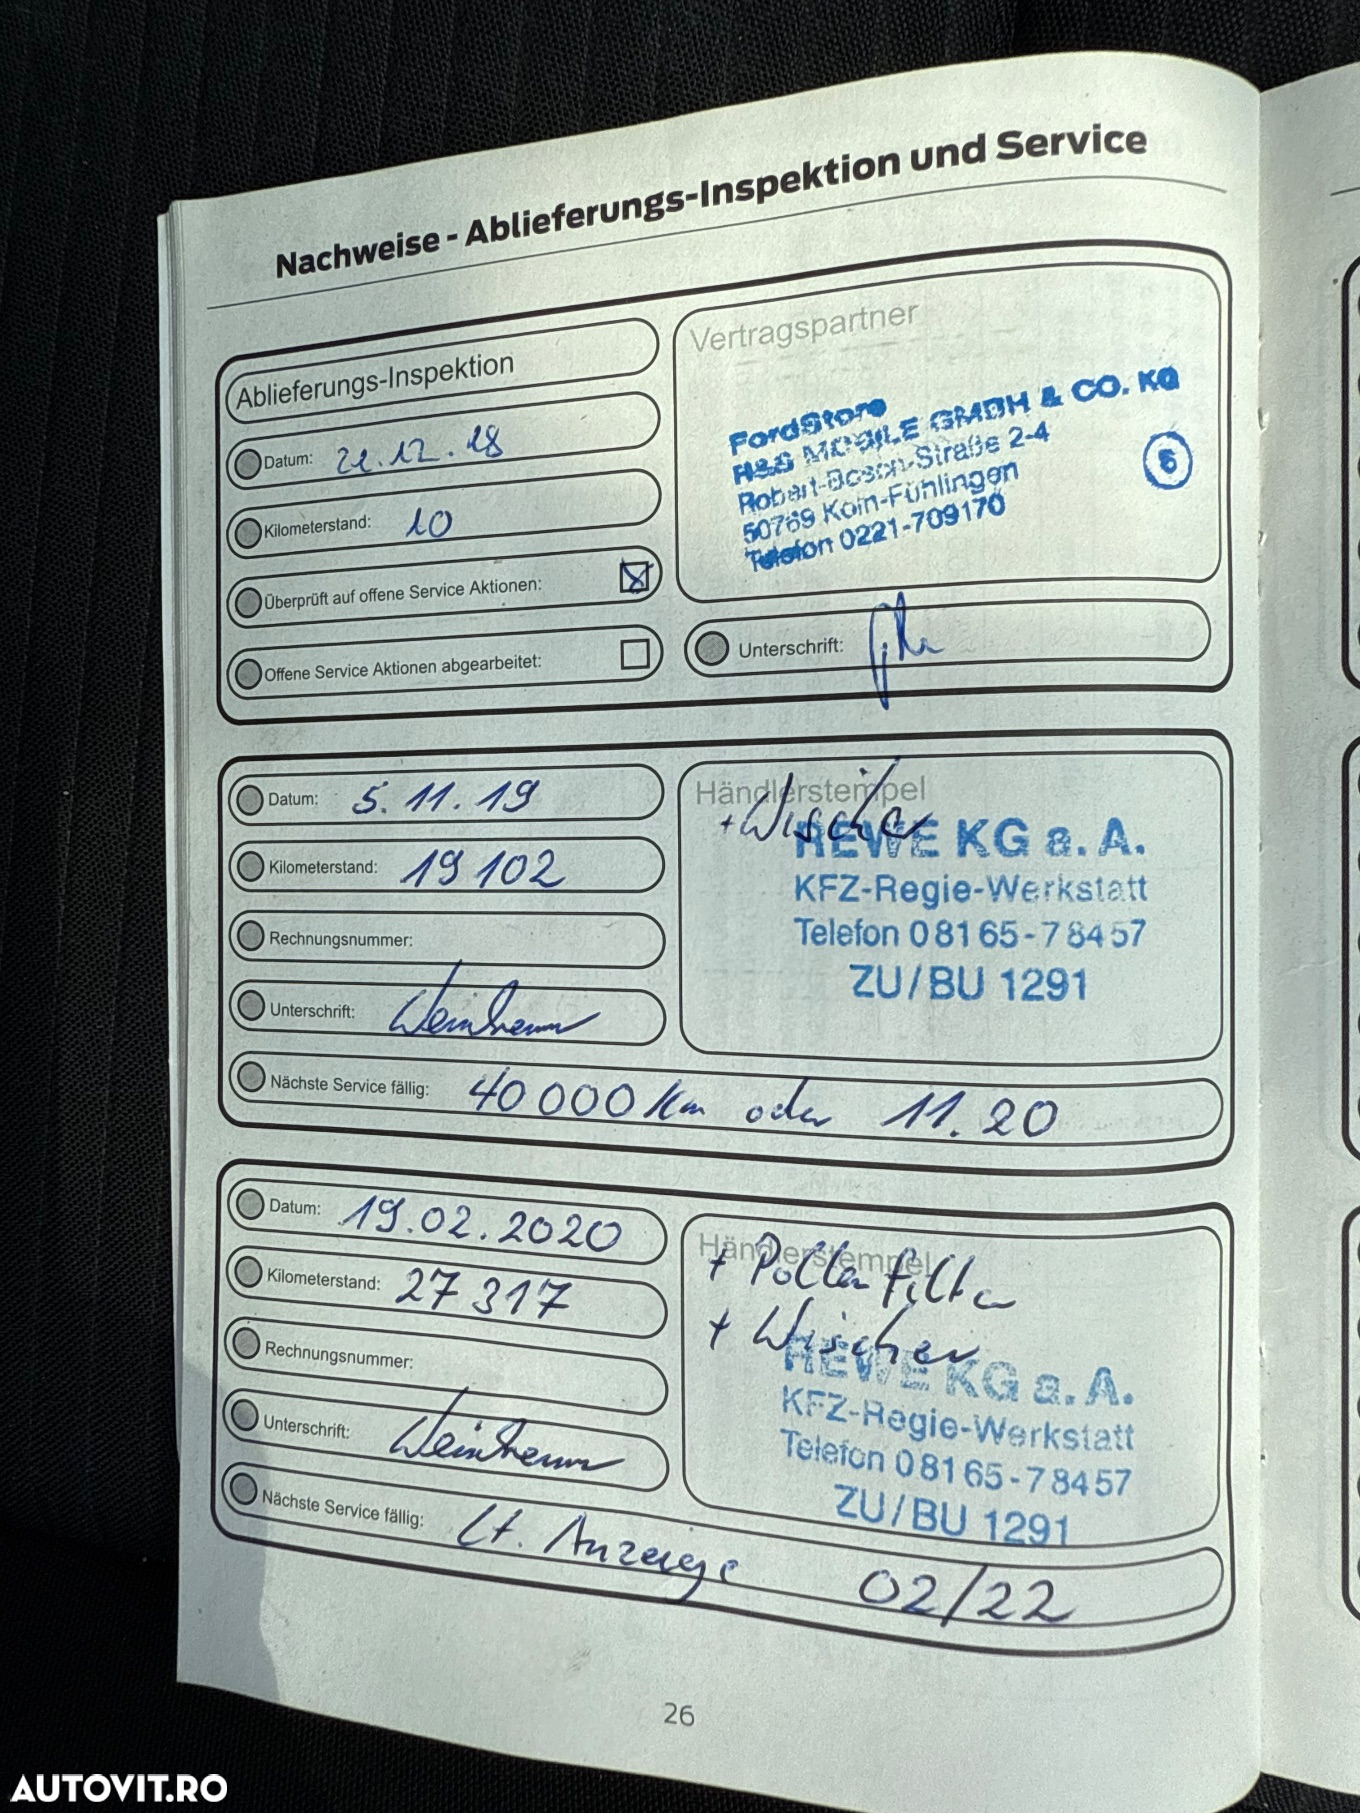 Nachweise - Ablieferungs-Inspektion und Service
Ablieferungs-Inspektion
Datum: 21.12.18
Kilometerstand: 10
Überprüft auf offene Service Aktionen:
Offene Service Aktionen abgearbeitet:
Vertragspartner
FordStore
H&S MOBILE GMBH & CO. KG
Robert-Bosch-Straße 2-4
50769 Köln-Fühlingen
Telefon 0221-709170
6
Unterschrift:
Datum: 5.11.19
Kilometerstand: 19 102
Rechnungsnummer:
Unterschrift:
Händlerstempel
+ Wischer
REWE KG a. A.
KFZ-Regie-Werkstatt
Telefon 0 81 65 - 7 84 57
ZU / BU 1291
Nächste Service fällig: 40 000 Km oder 11.20
Datum: 19.02.2020
Kilometerstand: 27 317
Rechnungsnummer:
Unterschrift:
Händlerstempel
+ Pollenfilter
+ Wischer
REWE KG a. A.
KFZ-Regie-Werkstatt
Telefon 0 81 65 - 7 84 57
ZU / BU 1291
Nächste Service fällig: Lt. Anzeige 02/22
26
AUTOVIT.RO